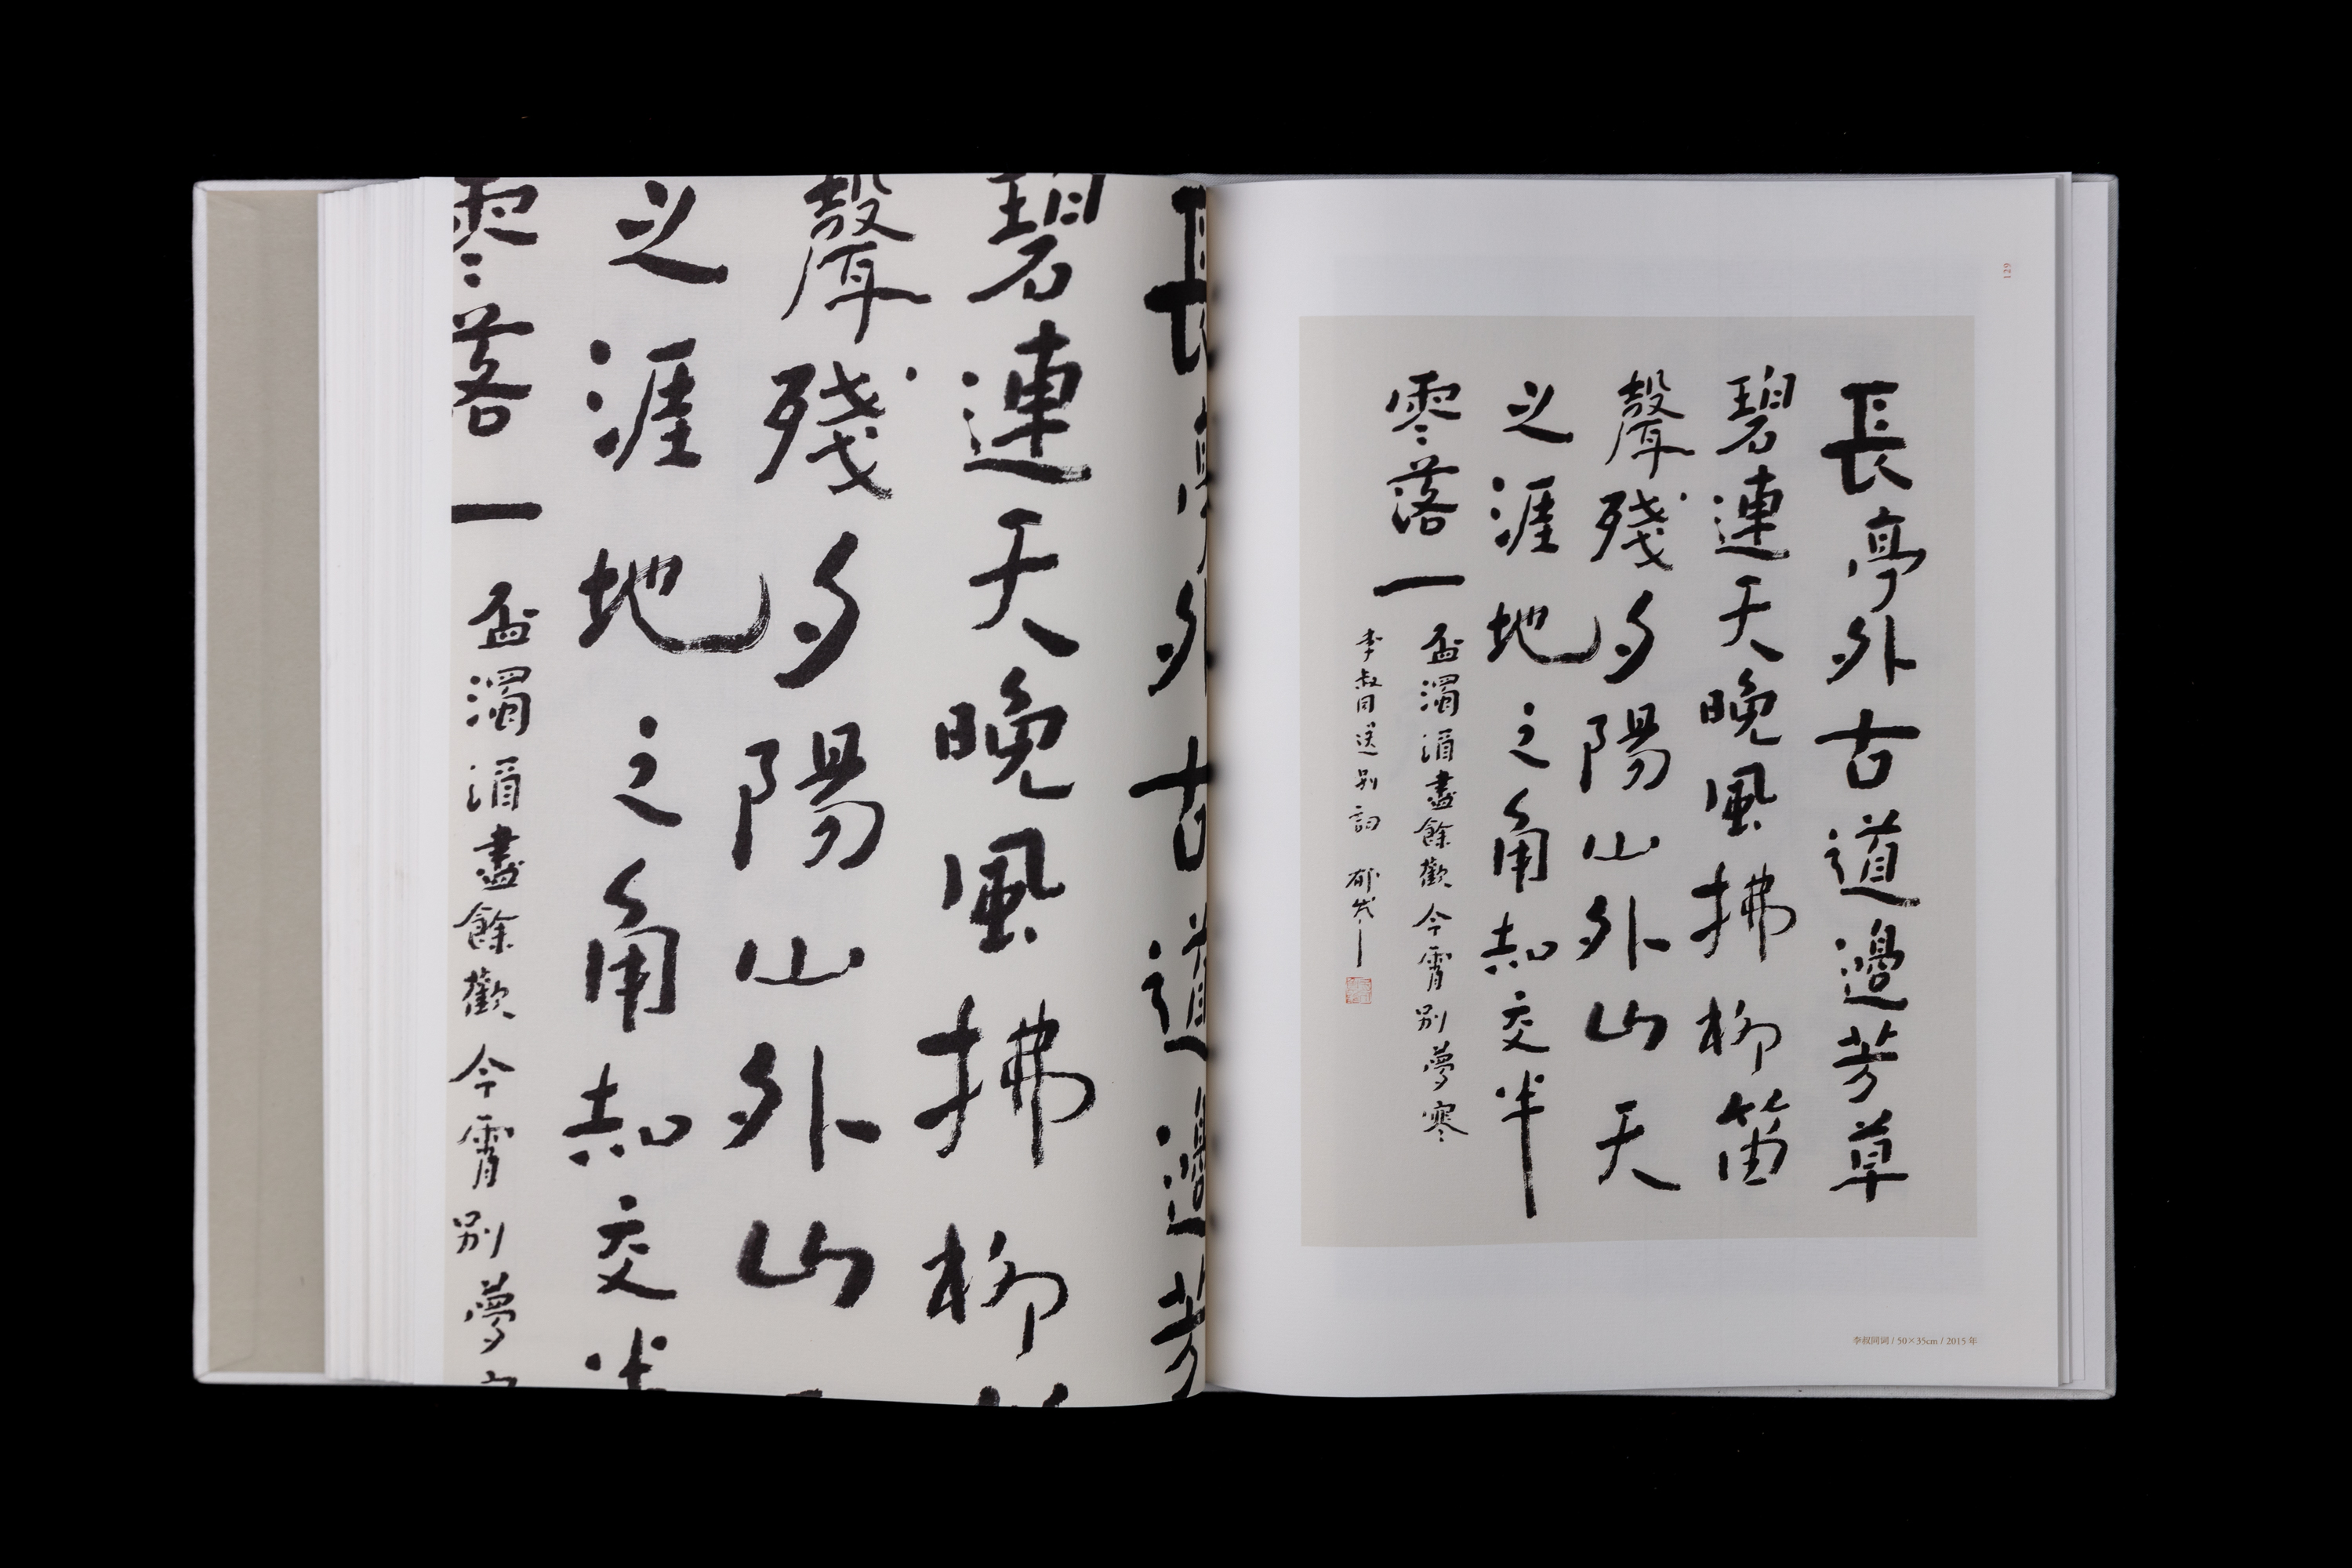 長亭外古道邊芳
碧連天晚風拂柳
聲殘夕陽山外山
之涯地之角知交半
零落一盃濁酒盡餘歡今宵別夢
129
長亭外古道邊芳草
碧連天晚風拂柳笛
聲殘夕陽山外山天
之涯地之角知交半
零落一盃濁酒盡餘歡今宵別夢寒
李叔同送別詞 郁
李叔同词 / 50×35cm / 2015 年